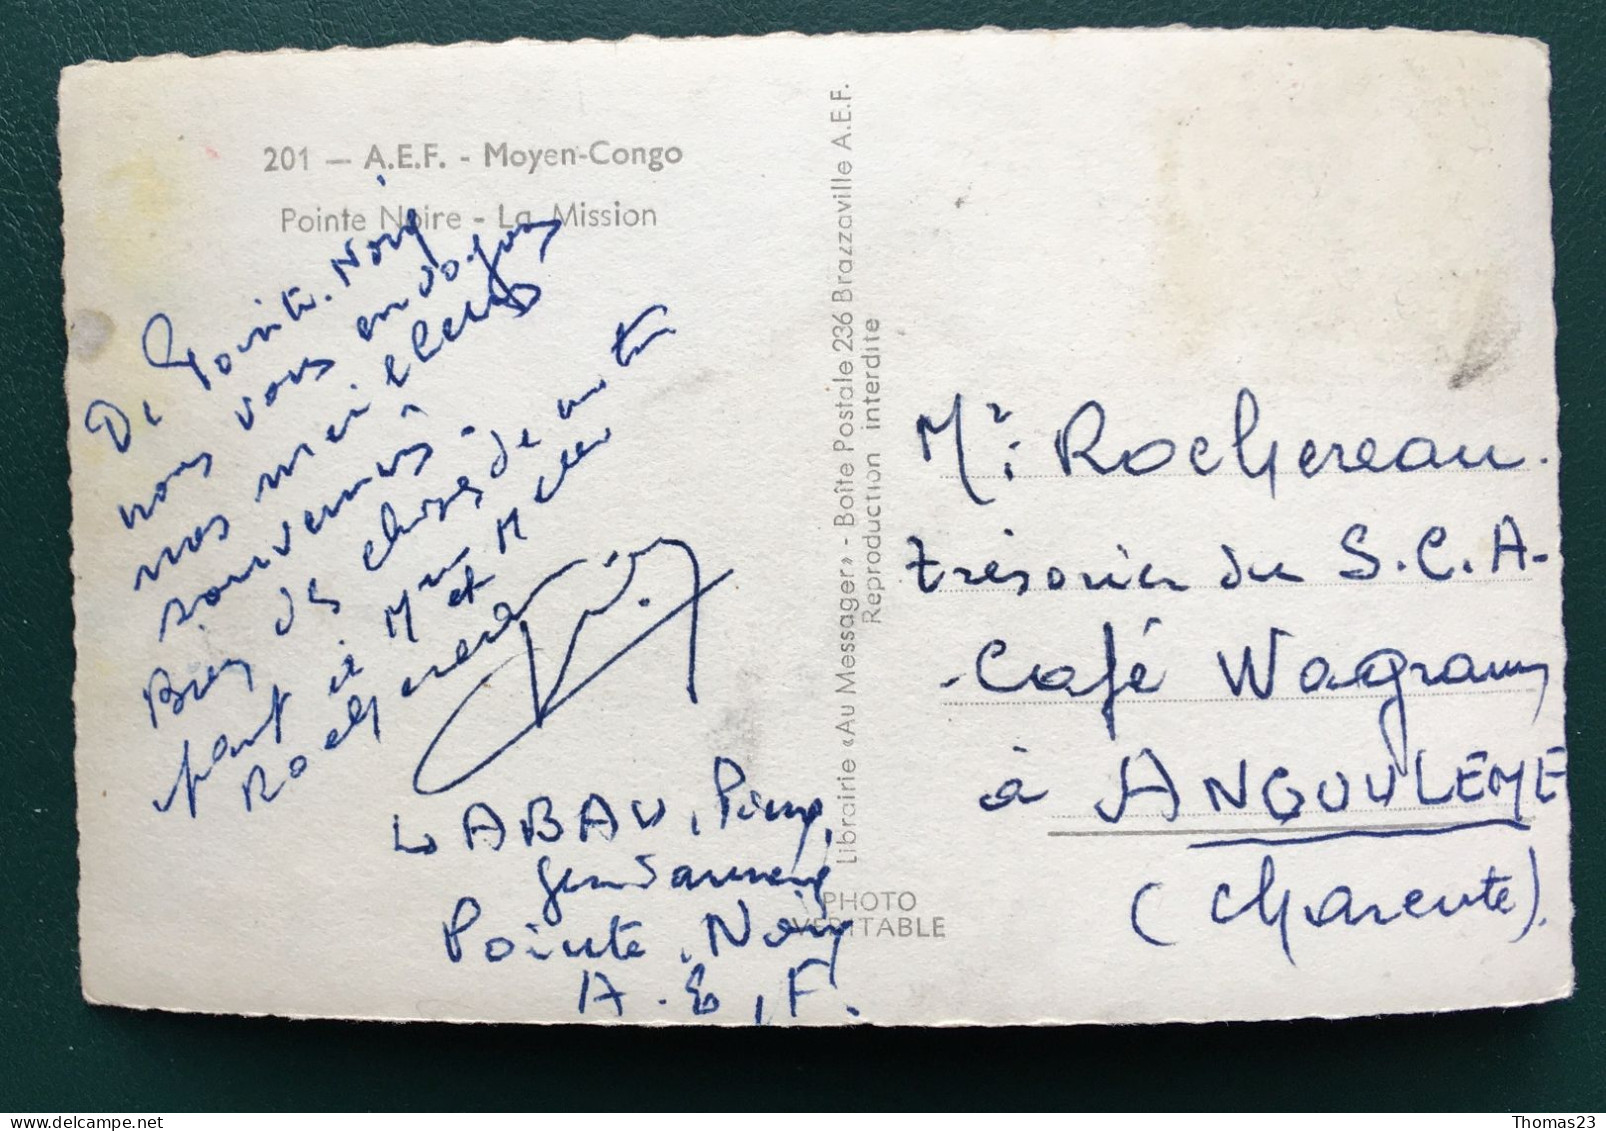 201 — A.E.F. - Moyen-Congo
Pointe Noire - La Mission
De Pointe-Noire
nous vous envoyons
nos meilleurs
souvenirs.
Bien des choses de notre
part à Mme et Melle
Rochereau
LABAU, Pierre,
Gendarmerie
Pointe-Noire
A.E.F.
Librairie «Au Messager» - Boîte Postale 236 Brazzaville A.E.F.
Reproduction interdite
PHOTO
VERITABLE
Mr: Rochereau.
trésorier du S.C.A-
-Café Wagram
à ANGOULEME
(Charente).
Thomas23